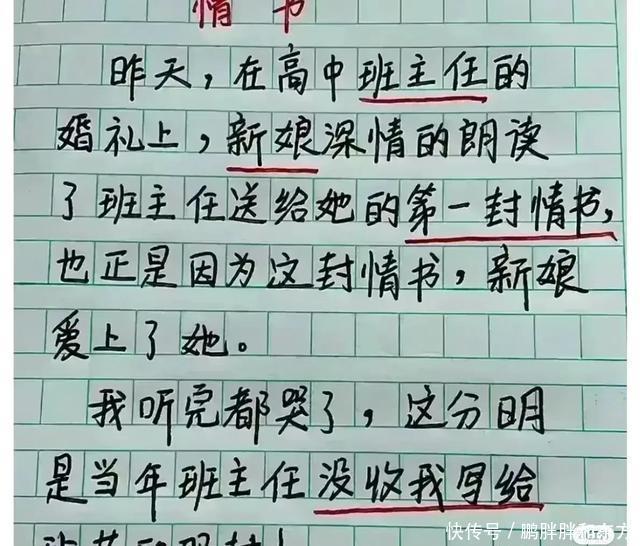 情书
昨天，在高中班主任的
婚礼上，新娘深情的朗读
了班主任送给她的第一封情书，
也正是因为这封情书，新娘
爱上了她。
我听完都哭了，这分明
是当年班主任没收我写给
快传号／鹏胖胖和东方